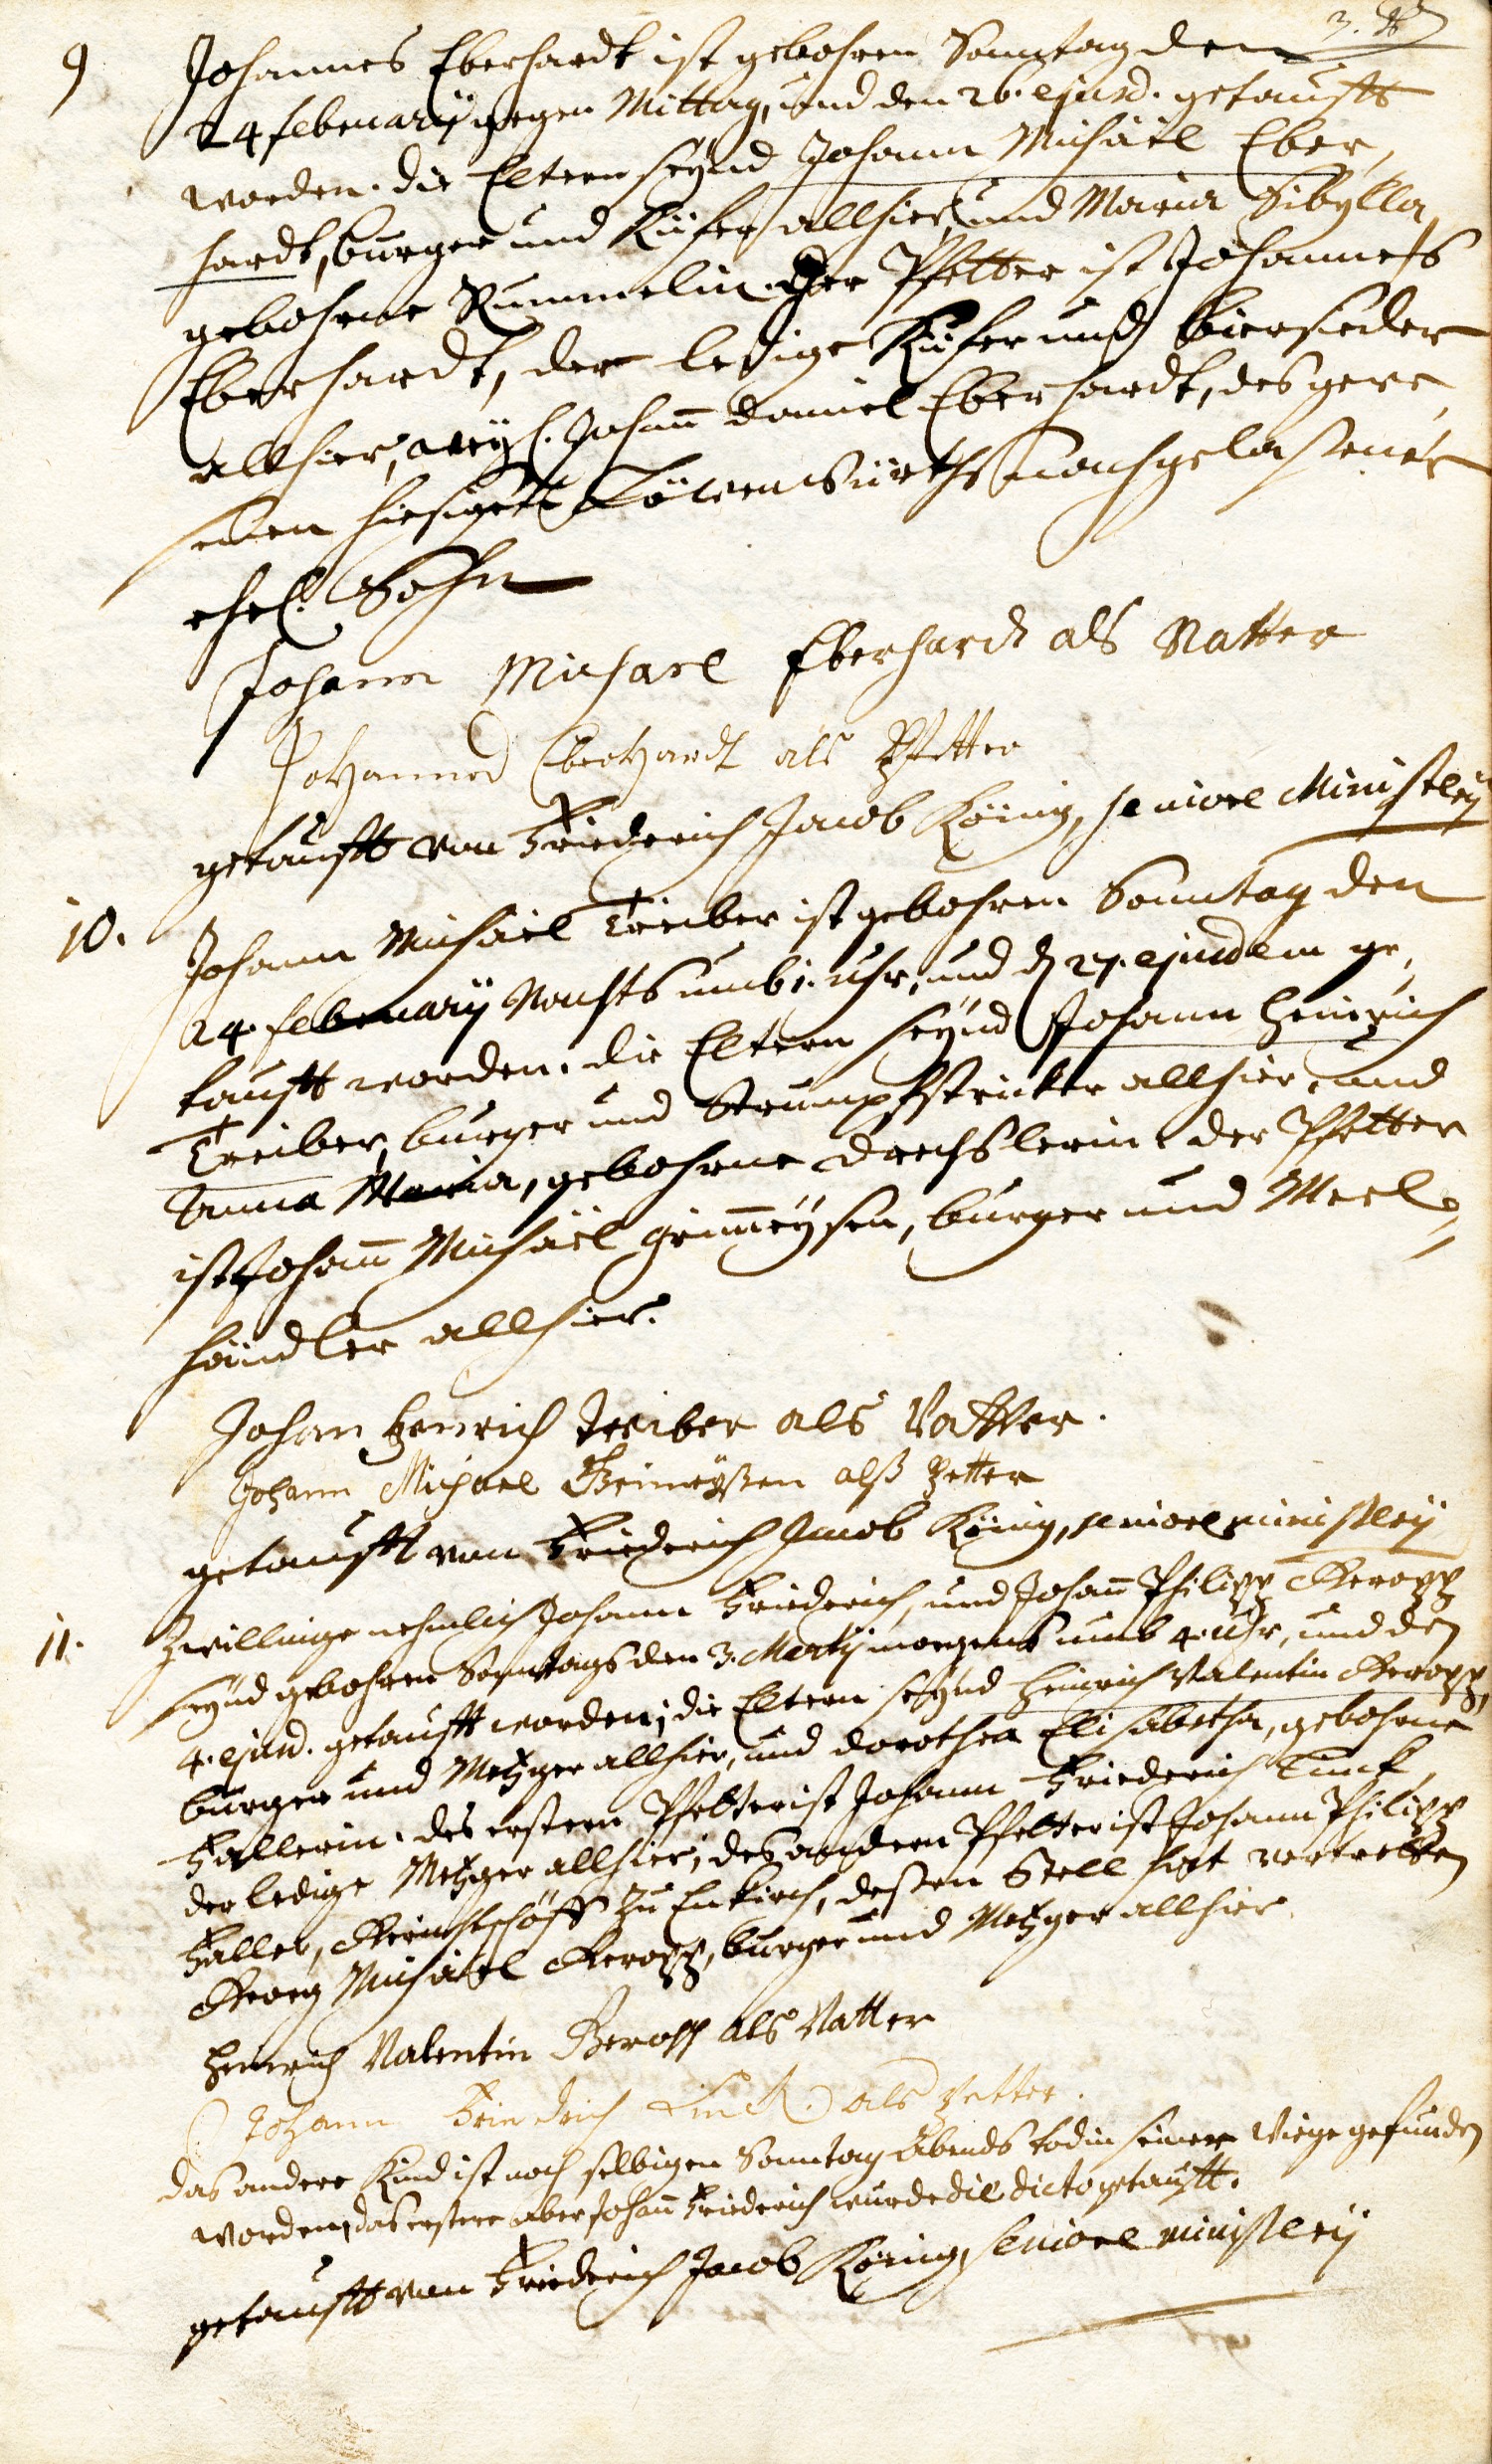 9 Johannes Eberhardt ist gebohren Sonntag den
24 februarij gegen Mittag, und den 26. ejusd. getaufft
worden. die Eltern seynd Johann Michäel Eber,
hardt, burger und Küfer allhier, und Maria Sibylla
gebohrne Rummelin. der Pfetter ist Johannes
Eberhardt, der ledige Küfer und Biersieder
allhier, weyl. Johañ Daniel Eberhardt, des gewe,
senen hiesigen Löwenwürths nachgelassener
ehel. Sohn
Johann Michael Eberhardt als Vatter
Johannes Eberhardt als Pfetter
getaufft von Friederich Jacob König, seniore Ministerij
10. Johann Michäel Treiber ist gebohren Sonntag den
24. februarij Nachts umb 1. uhr, und d. 27. ejusdem ge,
taufft worden. die Eltern seynd Johann Heinrich
Treiber, burger und Strumpfstricker allhier, und
Anna Maria, gebohrne Drechslerin. der Pfetter
ist Johañ Michäel Grimeysen, burger und Meel,
händler allhier.
Johan Henrich Treiber als Vatter.
Johann Michael Grimeyßen alß Petter
getaufft von Friederich Jacob König, seniore ministerij
11. Zwillinge nehmlich Johann Friederich, und Johañ Philipp Geropp
seynd gebohren Sonntags den 3. Martij morgens umb 4. Uhr, und den
4. ejusd. getaufft worden; die Eltern seynd Heinrich Valentin Geropp,
burger und Metzger allhier, und Dorothea Elisabetha, gebohrne
Hallerin. des erstern Pfetter ist Johann Friederich Linck,
der ledige Metzger allhier; des andern Pfetter ist Johann Philipp
Haller, Gerichtschöff zu Enkirch, dessen Stell hat vertretten
Georg Michäel Geropp, burger und Metzger allhier.
Henrich Valentin Geropp als Vatter
Johann Friedrich Linck als Petter.
das andere Kind ist noch selbigen Sonntag Abends tod in seiner Wiege gefunden
worden, das erstere aber Johañ Friederich wurde die dicto getaufft.
getaufft von Friederich Jacob König, seniore ministerij